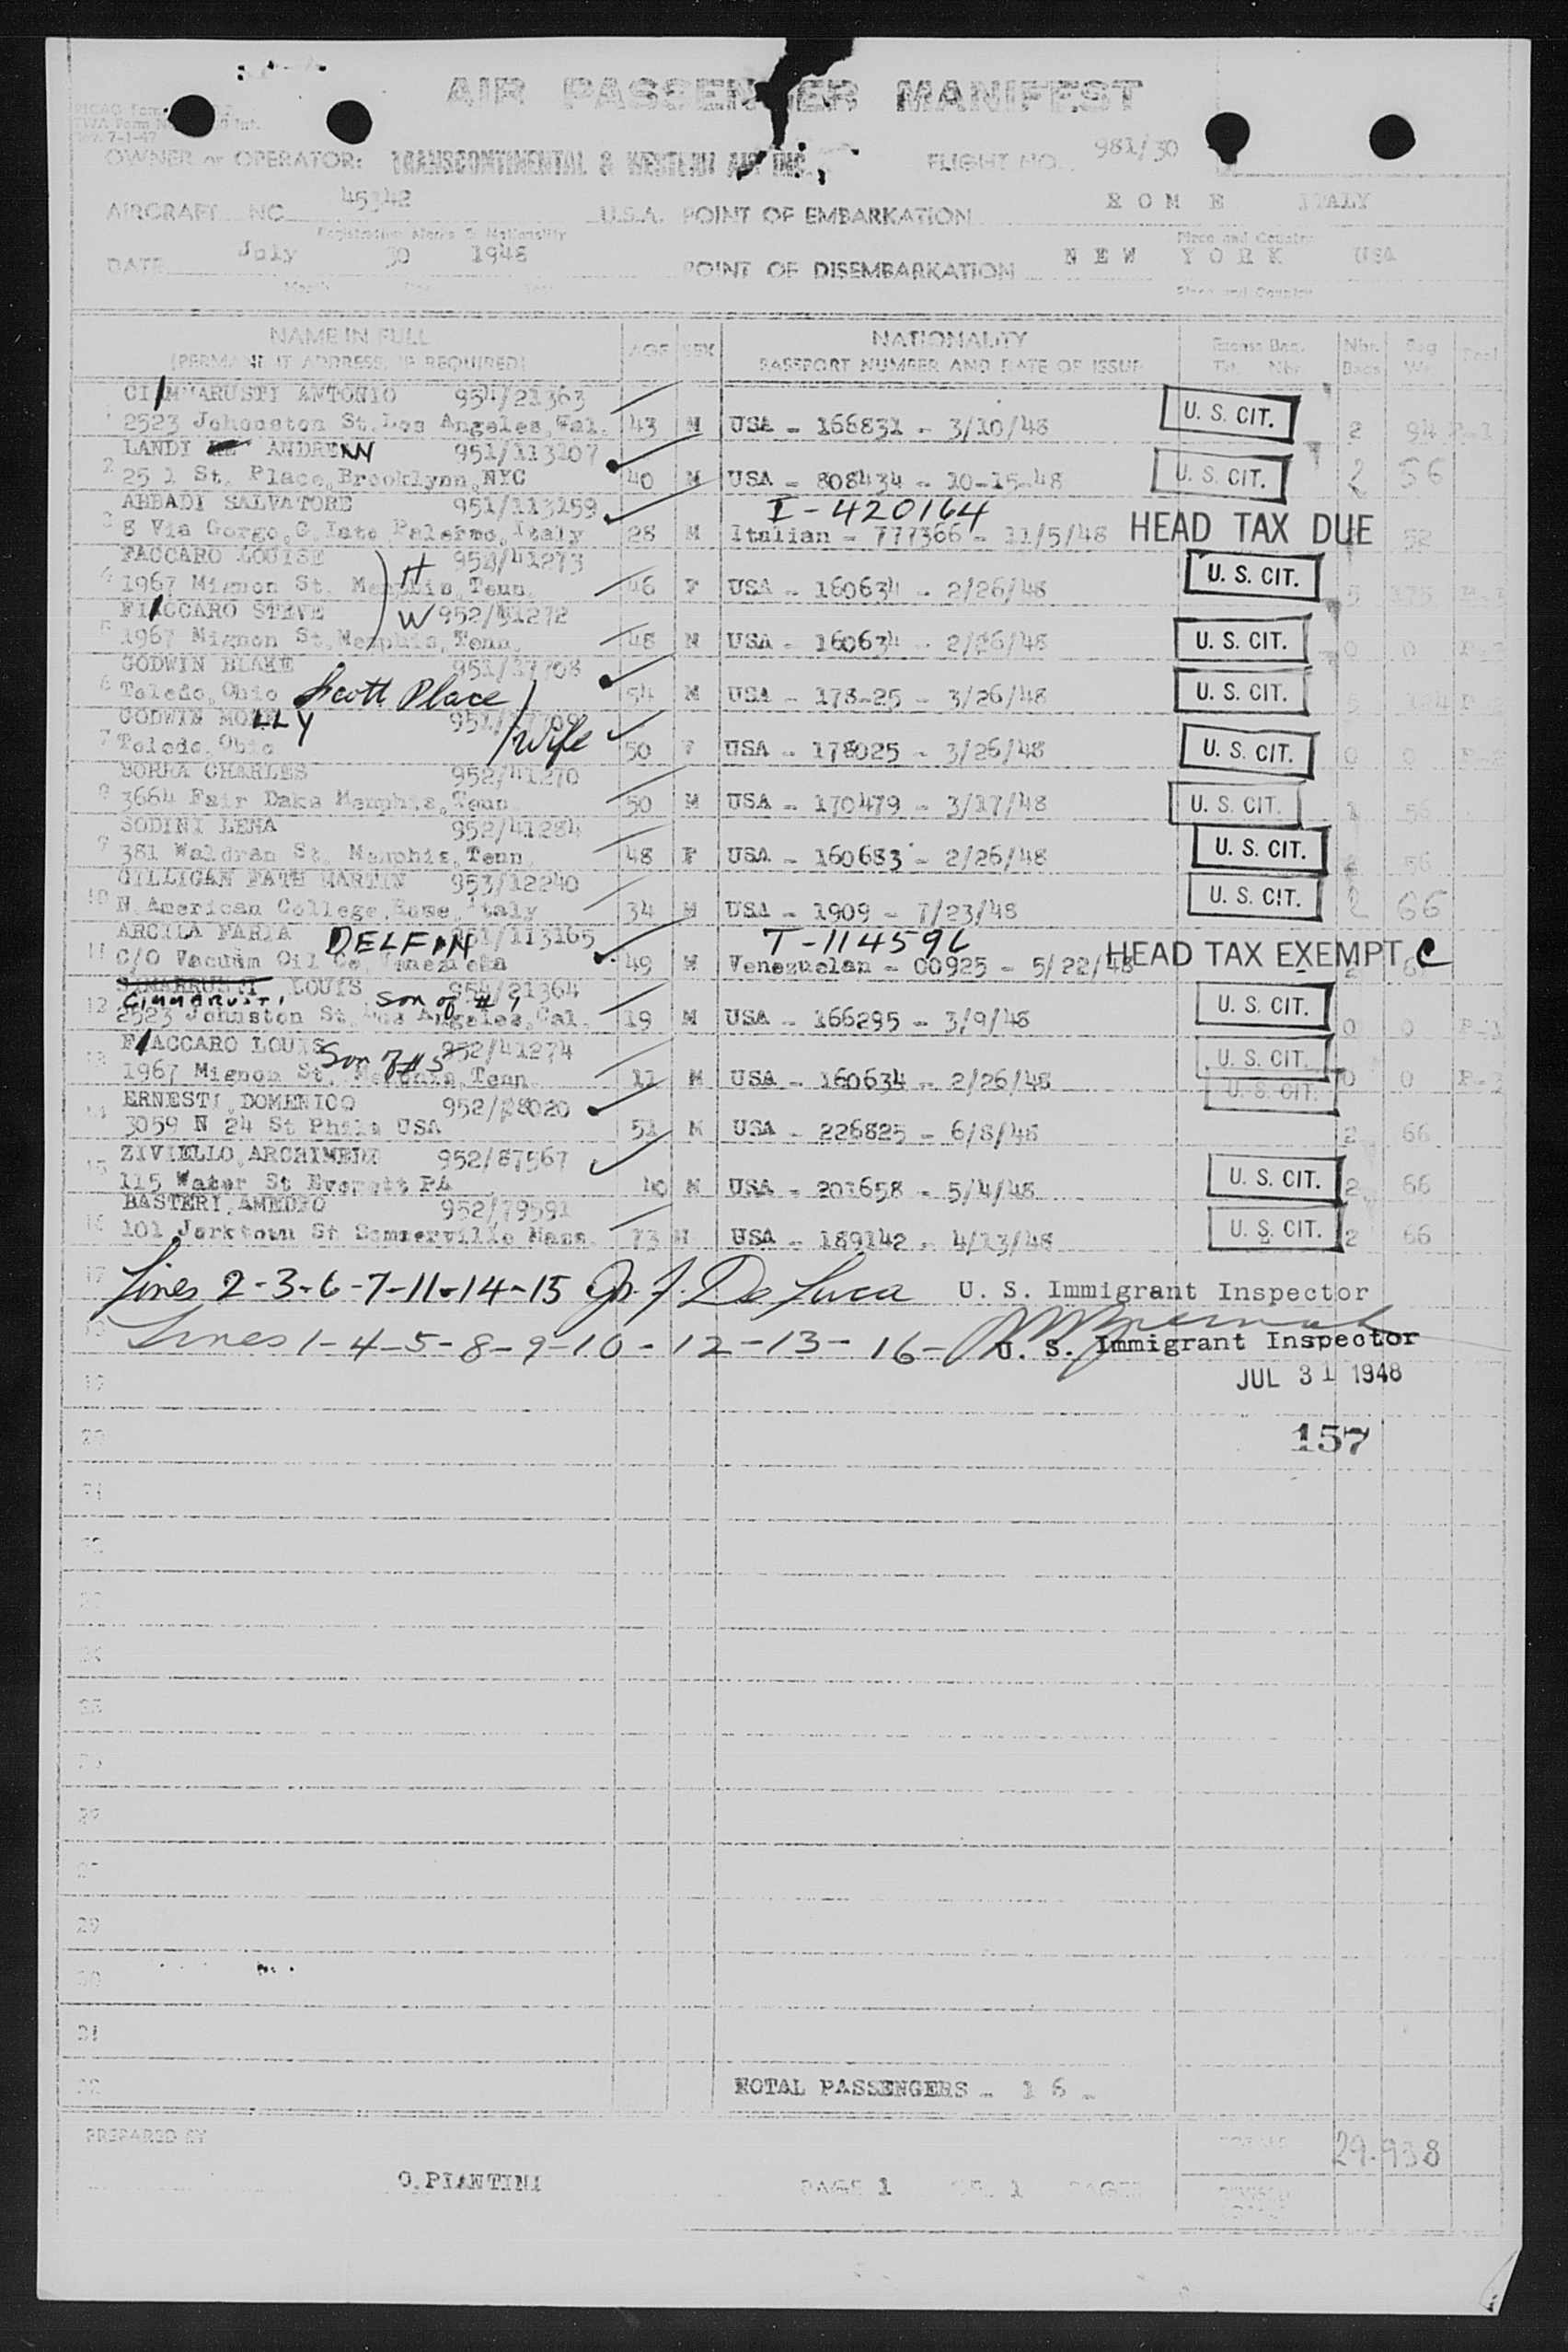 AIR PASSENGER MANIFEST
7-1-47
OWNER or OPERATOR: TRANSCONTINENTAL & WESTERN AIR INC. FLIGHT NO. 981/30
AIRCRAFT NC 45342 U.S.A. POINT OF EMBARKATION R O M E ITALY
Registration Marks & Nationality Place and Country
DATE July 30 1948 POINT OF DISEMBARKATION N E W Y O R K USA
Month Day Year Place and Country
NAME IN FULL AGE SEX NATIONALITY Excess Bag. Nbr. Bag
(PERMANENT ADDRESS, IF REQUIRED) PASSPORT NUMBER AND DATE OF ISSUE Tkt. Nbr. Bags Wt.
CIMMARUSTI ANTONIO 954/21363
1 2523 Johnston St. Los Angeles, Cal. 43 M USA - 166831 - 3/10/48 U. S. CIT. 2 94 P-1
LANDI ANDREW 951/113107
2 25 1 St. Place, Brooklynn, NYC 40 M USA - 808434 - 10-15-48 U. S. CIT. 2 56
ABBADI SALVATORE 951/113159 I-420164
3 8 Via Gorgo, Palermo, Italy 28 M Italian - 777366 - 11/5/48 HEAD TAX DUE 52
FACCARO LOUISE H 952/41273
4 1967 Mignon St. Memphis, Tenn. 46 F USA - 160634 - 2/26/48 U. S. CIT. 5
FIACCARO STEVE W 952/41272
5 1967 Mignon St. Memphis, Tenn. 48 M USA - 160634 - 2/26/48 U. S. CIT. 0 0
GODWIN BLAKE 951/37708
6 Toledo, Ohio Scott Place 54 M USA - 178-25 - 3/26/48 U. S. CIT. 5
GODWIN MOLLY 951/37709
7 Toledo, Ohio Wife 50 F USA - 178025 - 3/26/48 U. S. CIT. 0 0
BORRA CHARLES 952/41270
8 3664 Fair Daks Memphis, Tenn 50 M USA - 170479 - 3/17/48 U. S. CIT. 1 56
SODINI LENA 952/41284
9 381 Waldran St. Memphis, Tenn. 48 F USA - 160683 - 2/26/48 U. S. CIT. 2 56
GILLIGAN FATH MARTIN 953/12240
10 N. American College, Rome, Italy 34 M USA - 1909 - 7/23/48 U. S. CIT. 2 66
ARCILA FARIA DELFIN 951/113165 T-114596
11 C/O Vacuum Oil Co, Venezuela 49 M Venezuelan - 00925 - 5/22/48 HEAD TAX EXEMPT C
LOUIS 954/21364
CIMMARUSTI son of #1
12 2523 Johnston St. Los Angeles, Cal. 19 M USA - 166295 - 3/9/48 U. S. CIT. 0 0 P-1
FIACCARO LOUIS 952/41274
Son of #5 U. S. CIT.
13 1967 Mignon St. Memphis, Tenn 11 M USA - 160634 - 2/26/48 0 0
ERNESTI, DOMENICO 952/28020 U. S. CIT.
14 3059 N 24 St Phila USA 51 M USA - 226825 - 6/8/48 2 66
ZIVIELLO, ARCHIMEDE 952/87567
15 115 Water St Everett PA 40 M USA - 201658 - 5/4/48 U. S. CIT. 2 66
BASTERI, AMEDEO 952/79591
16 101 Jorktown St Sommerville Mass. 73 M USA - 189142 - 4/13/48 U. S. CIT. 2 66
17 Lines 2-3-6-7-11-14-15 De Luca U. S. Immigrant Inspector
Lines 1-4-5-8-9-10-12-13-16- U. S. Immigrant Inspector
19 JUL 31 1948
20 157
21
29
30
31
TOTAL PASSENGERS - 1 6 -
PREPARED BY TOTALS 29 938
O. PIANTINI PAGE 1 OF 1 PAGES